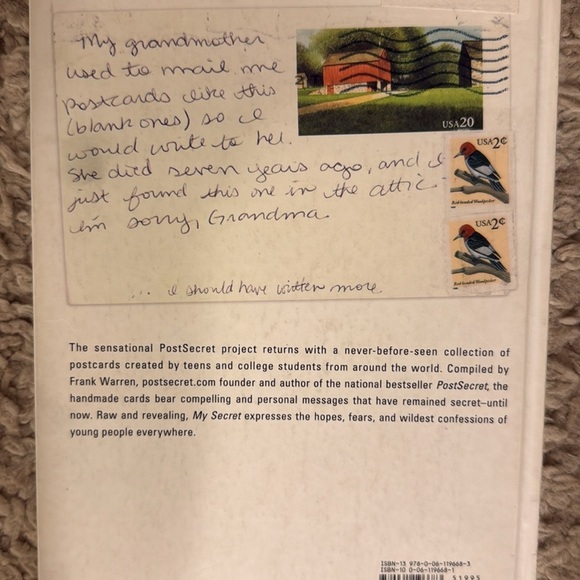 My grandmother
used to mail me
postcards like this
(blank ones) so I
would write to her.
She died seven years ago, and I
just found this one in the attic.
i'm sorry, Grandma.
... i should have written more.
USA20
USA2¢
Red-headed Woodpecker
USA2¢
Red-headed Woodpecker
The sensational PostSecret project returns with a never-before-seen collection of
postcards created by teens and college students from around the world. Compiled by
Frank Warren, postsecret.com founder and author of the national bestseller PostSecret, the
handmade cards bear compelling and personal messages that have remained secret–until
now. Raw and revealing, My Secret expresses the hopes, fears, and wildest confessions of
young people everywhere.
ISBN-13 978-0-06-119668-3
ISBN-10 0-06-119668-1
51995